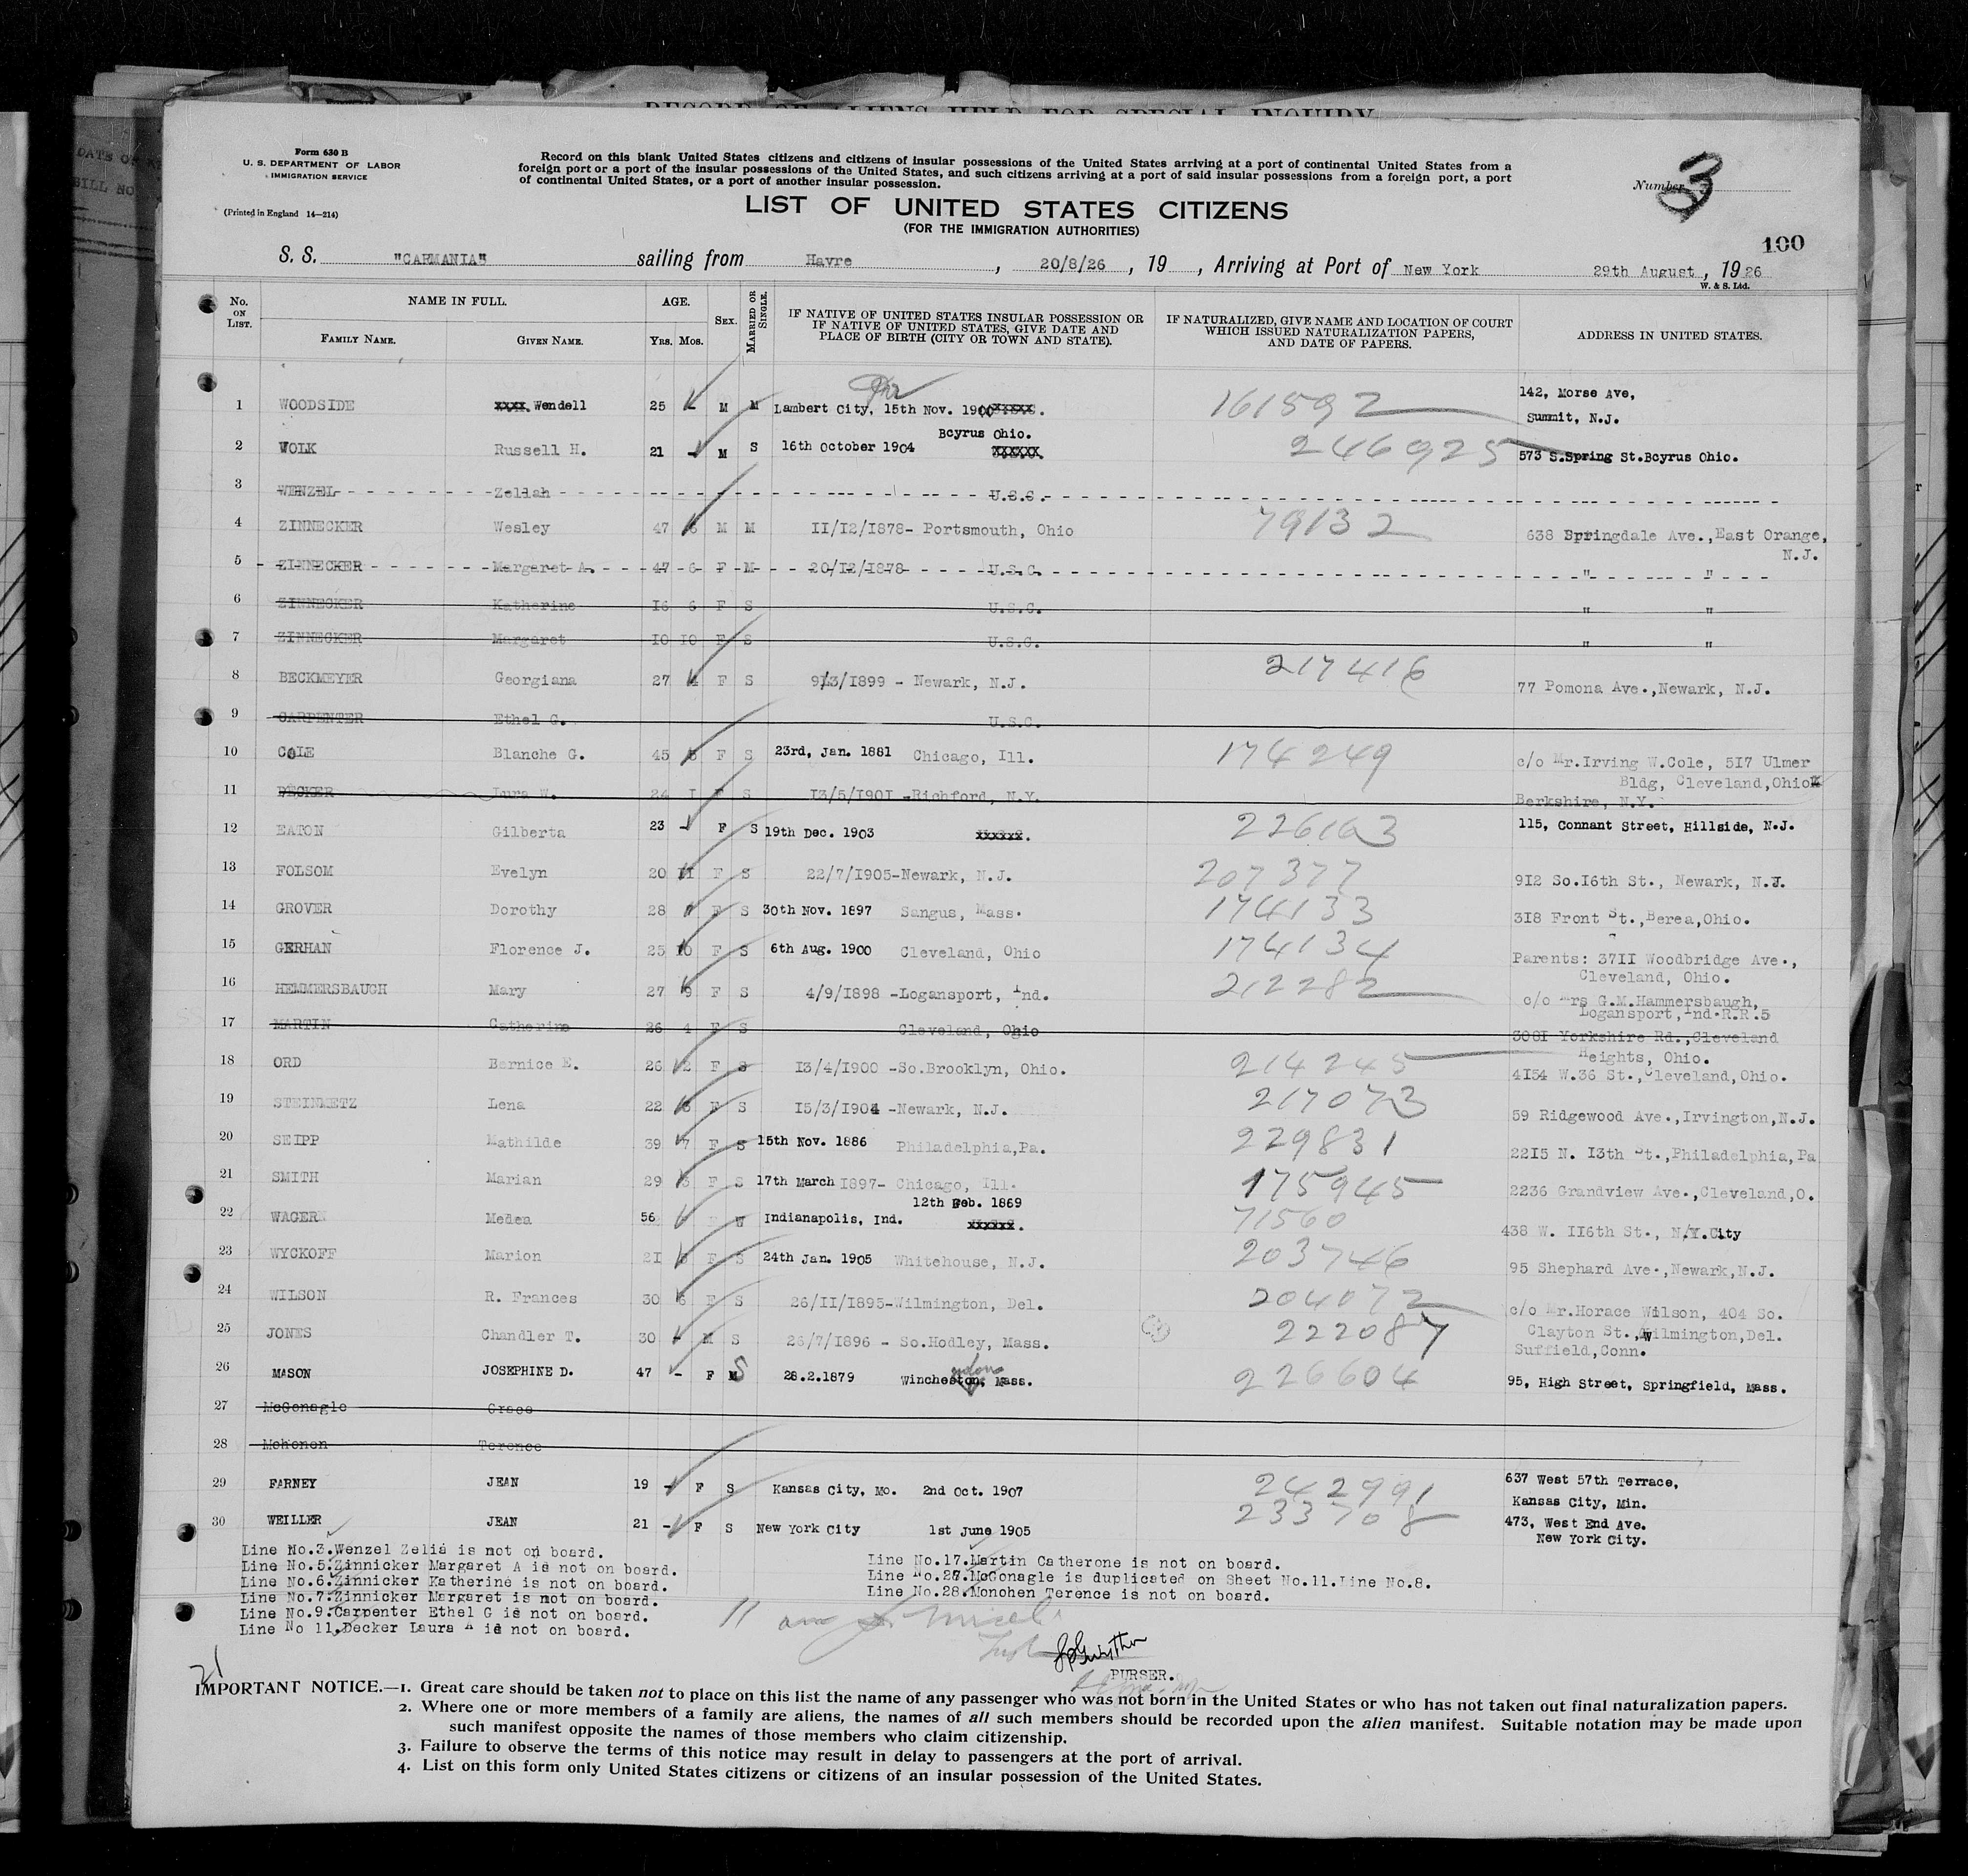 RECORD OF ALIENS HELD FOR SPECIAL INQUIRY
Form 630 B
U. S. DEPARTMENT OF LABOR
IMMIGRATION SERVICE
(Printed in England 14—214)
Record on this blank United States citizens and citizens of insular possessions of the United States arriving at a port of continental United States from a
foreign port or a port of the insular possessions of the United States, and such citizens arriving at a port of said insular possessions from a foreign port, a port
of continental United States, or a port of another insular possession.
Number 3
LIST OF UNITED STATES CITIZENS
(FOR THE IMMIGRATION AUTHORITIES)
100
S. S. "CARMANIA" sailing from Havre, 20/8/26, 19 , Arriving at Port of New York 29th August, 19 26
W. & S. Ltd.
No. ON LIST. NAME IN FULL. FAMILY NAME. GIVEN NAME. AGE. Yrs. Mos. SEX. MARRIED OR SINGLE. IF NATIVE OF UNITED STATES INSULAR POSSESSION OR IF NATIVE OF UNITED STATES, GIVE DATE AND PLACE OF BIRTH (CITY OR TOWN AND STATE). IF NATURALIZED, GIVE NAME AND LOCATION OF COURT WHICH ISSUED NATURALIZATION PAPERS, AND DATE OF PAPERS. ADDRESS IN UNITED STATES.
1 WOODSIDE xxxx Wendell 25 - M M Lambert City, 15th Nov. 1900 xxxxx. 161592 142, Morse Ave, Summit, N.J.
2 WOLK Russell H. 21 - M S 16th October 1904 Bcyrus Ohio. xxxxxx. 246925 573 S.Spring St.Bcyrus Ohio.
3 WENZEL Zellah U.S.C.
4 ZINNECKER Wesley 47 6 M M II/I2/I878- Portsmouth, Ohio 79132 638 Springdale Ave.,East Orange, N.J.
5 ZINNECKER Margaret A. 47 6 F M 20/I2/I878 U.S.C. " "
6 ZINNECKER Katherine I6 6 F S U.S.C. " "
7 ZINNECKER Margaret I0 I0 F S U.S.C. " "
8 BECKMEYER Georgiana 27 4 F S 9/3/I899 - Newark, N.J. 217416 77 Pomona Ave.,Newark, N.J.
9 CARPENTER Ethel G. U.S.C.
10 COLE Blanche G. 45 5 F S 23rd, Jan. 1881 Chicago, Ill. 174249 c/o Mr.Irving W.Cole, 5I7 Ulmer Bldg, Cleveland,Ohio
11 DECKER Lura W. 24 I F S I3/5/I90I -Richford, N.Y. Berkshire, N.Y.
12 EATON Gilberta 23 - F S 19th Dec. 1903 xxxxx. 226163 115, Connant Street, Hillside, N.J.
13 FOLSOM Evelyn 20 11 F S 22/7/I905-Newark, N.J. 207377 9I2 So.I6th St., Newark, N.J.
14 GROVER Dorothy 28 F S 30th Nov. 1897 Sangus, Mass. 174133 3I8 Front St.,Berea,Ohio.
15 GERHAN Florence J. 25 10 F S 6th Aug. 1900 Cleveland, Ohio 174134 Parents: 37II Woodbridge Ave., Cleveland, Ohio.
16 HEMMERSBAUGH Mary 27 9 F S 4/9/I898 -Logansport, Ind. 212282 c/o Mrs G.M.Hammersbaugh, Logansport,Ind.R.R.5
17 MARTIN Catherine 26 4 F S Cleveland, Ohio 300I Yorkshire Rd.,Cleveland Heights, Ohio.
18 ORD Bernice E. 26 2 F S I3/4/I900 -So.Brooklyn, Ohio. 214245 4I54 W.36 St.,Cleveland,Ohio.
19 STEINMETZ Lena 22 F S I5/3/I904 -Newark, N.J. 217073 59 Ridgewood Ave.,Irvington,N.J.
20 SEIPP Mathilde 39 7 F S 15th Nov. 1886 Philadelphia,Pa. 229831 22I5 N. I3th St.,Philadelphia,Pa
21 SMITH Marian 29 F S 17th March I897- Chicago, Ill. 175945 2236 Grandview Ave.,Cleveland,O.
22 WAGER Medea 56 W Indianapolis, Ind. 12th Feb. 1869 xxxxx. 71560 438 W. II6th St., N.Y.City
23 WYCKOFF Marion 2I F S 24th Jan. 1905 Whitehouse, N.J. 203746 95 Shephard Ave.,Newark,N.J.
24 WILSON R. Frances 30 6 F S 26/II/I895-Wilmington, Del. 204072 c/o Mr.Horace Wilson, 404 So. Clayton St.,Wilmington,Del.
25 JONES Chandler T. 30 - M S 26/7/I896 - So.Hodley, Mass. 222087 Suffield,Conn.
26 MASON JOSEPHINE D. 47 - F S 28.2.1879 Wincheston, Mass. 226604 95, High Street, Springfield, Mass.
27 McGonagle Grace
28 Mohonon Terence
29 FARNEY JEAN 19 - F S Kansas City, Mo. 2nd Oct. 1907 242991 637 West 57th Terrace, Kansas City, Min.
30 WEILLER JEAN 21 - F S New York City 1st June 1905 233708 473, West End Ave. New York City.
Line No.3.Wenzel Zelia is not on board.
Line No.5.Zinnicker Margaret A is not on board.
Line No.6.Zinnicker Katherine is not on board.
Line No.7.Zinnicker Margaret is not on board.
Line No.9.Carpenter Ethel G is not on board.
Line No 11.Decker Laura A is not on board.
Line No.17.Martin Catherone is not on board.
Line No.27.McGonagle is duplicated on Sheet No.11.Line No.8.
Line No.28.Monohen Terence is not on board.
PURSER.
21
IMPORTANT NOTICE.—1. Great care should be taken not to place on this list the name of any passenger who was not born in the United States or who has not taken out final naturalization papers.
2. Where one or more members of a family are aliens, the names of all such members should be recorded upon the alien manifest. Suitable notation may be made upon
such manifest opposite the names of those members who claim citizenship.
3. Failure to observe the terms of this notice may result in delay to passengers at the port of arrival.
4. List on this form only United States citizens or citizens of an insular possession of the United States.